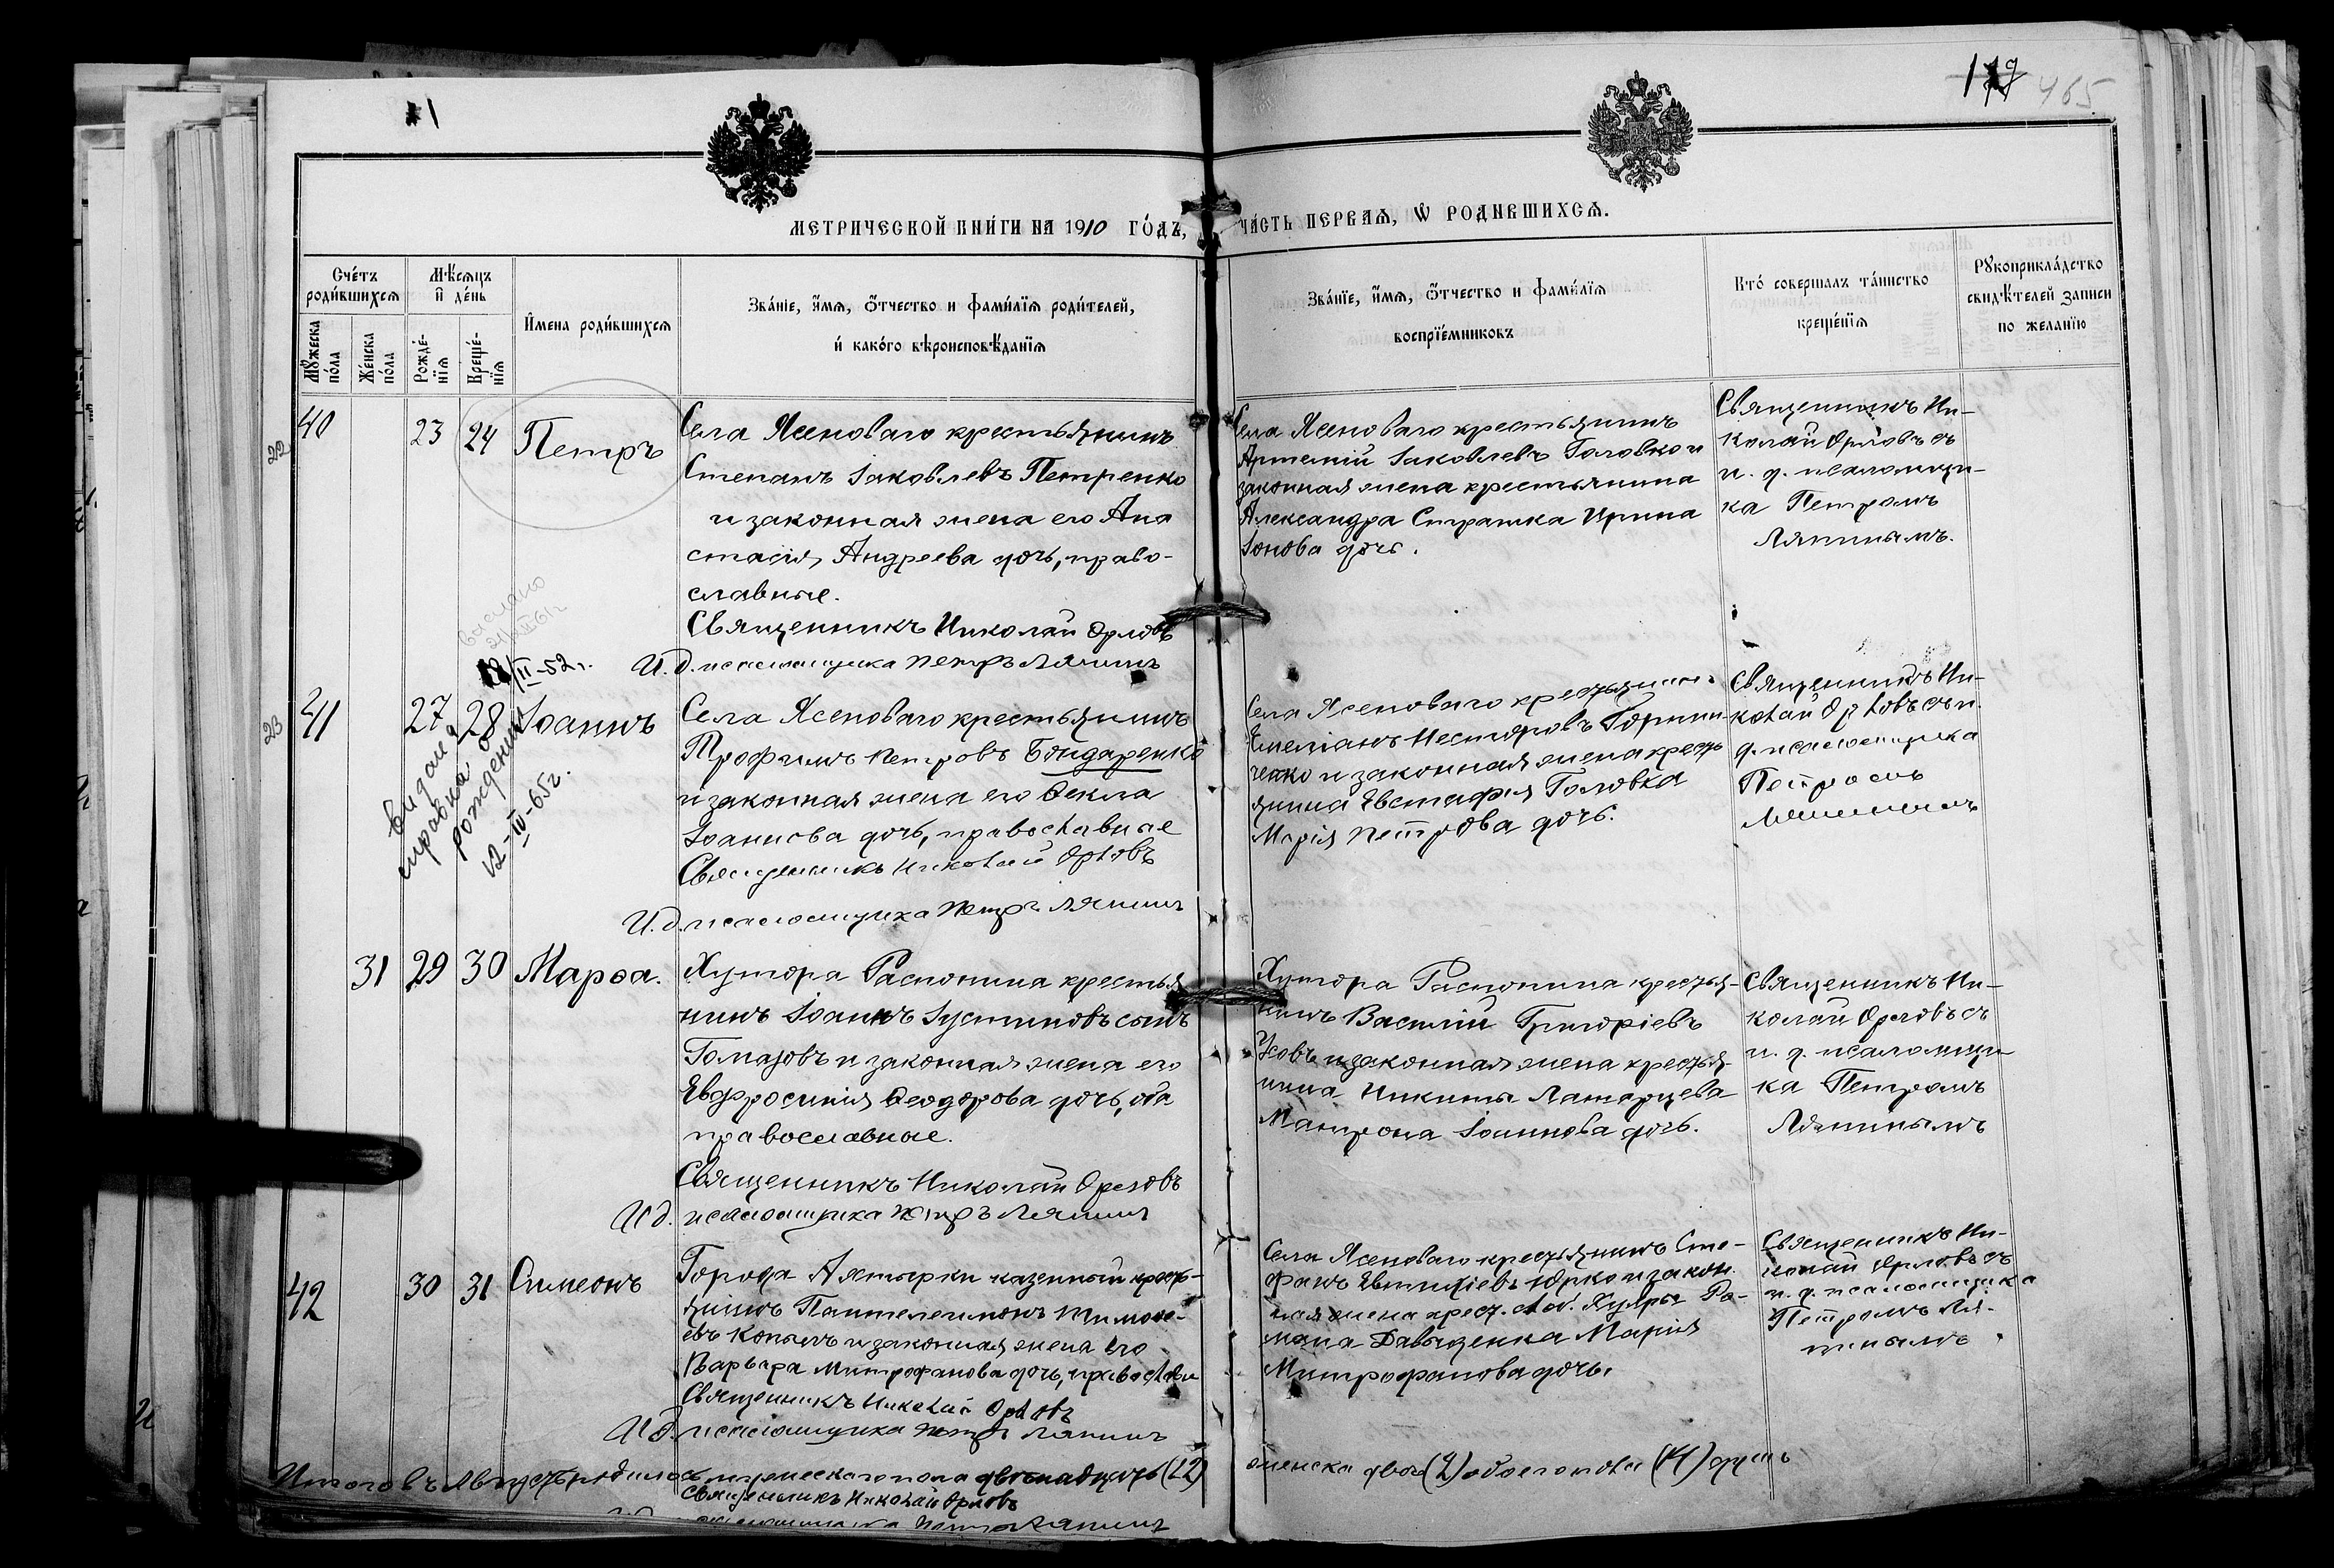 1
465
МЕТРИЧЕСКОЙ КНИ́ГИ НА 1910 ГО́ДЪ, ЧА́СТЬ ПЕРВАѦ, Ѡ҆ РОДИВШИХСѦ.
Сче́тъ роди́вшихсѧ
Мꙋ́жеска по́ла
Же́нска по́ла
Мѣ́сѧцъ и҆ де́нь
Рожде́-нїѧ
Креще́-нїѧ
И҆мена роди́вшихсѧ
Зва́нїе, и҆́мѧ, ѻ҆́тчество и фами́лїѧ роди́телей,
и҆ како́гѡ вѣроисповѣ́данїѧ
Зва́нїе, и҆́мѧ, ѻ҆́тчество и фами́лїѧ
воспрїе́мниковъ
Кто́ соверша́лъ та́инство
креще́нїѧ
Рꙋкоприкла́дство
свидѣ́телей записи
по жела́нїю
22
40 23 24 Петръ
Села Ясеноваго крестьянинъ
Степанъ Іаковлевъ Петренко
и законная жена его Ана
стасія Андреева дочь, право-
славные.
Священникъ Николай Орловъ
И. д. псаломщика Петръ Ляпинъ
Села Ясеноваго крестьянинъ
Артемій Іаковлевъ Головко и
законная жена крестьянина
Александра Страшка Ирина
Іонова дочь.
Священникъ Ни-
колай Орловъ съ
и. д. псаломщи-
ка Петромъ
Ляпинымъ.
выслано
/II-52 г.
23
41 27 28 Іоаннъ
видана
справка о
рождении
12-IV-65г.
Села Ясеноваго крестьянинъ
Трофимъ Петровъ Бондаренко
и законная жена его Ѳекла
Іоаннова дочь, православные
Священникъ Николай Орловъ
И. д. псаломщика Петръ Ляпинъ
Села Ясеноваго крестьянинъ
Емеліанъ Несторовъ Горнич-
ченко и законная жена кресть
янина Евстафія Головка
Марія Петрова дочь.
Священникъ Ни-
колай Орловъ съ и.
д. псаломщика
Петромъ
Ляпинымъ
31 29 30 Марѳа.
Хутора Распопина крестья
нинъ Іоаннъ Іустиновъ сынъ
Гомазовъ и законная жена его
Евфросинія Ѳеодорова дочь, оба
православные.
Священникъ Николай Орловъ
И д. псаломщика Петръ Ляпинъ
Хутора Распопина крестья-
нинъ Василій Григоріевъ
Усовъ и законная жена крестья-
нина Никиты Латарцева
Матрона Іоаннова дочь.
Священникъ Ни-
колай Орловъ съ
и. д. псаломщи-
ка Петромъ
Ляпинымъ
42 30 31 Симеонъ
Города Ахтырки казенный крест-
янинъ Пантелеимонъ Тимоѳе-
евъ Копылъ и законная жена его
Варвара Митрофанова дочь, православн
Священникъ Николай Орловъ
И д. псаломщика Петръ Ляпинъ
Села Ясеноваго крестьянинъ Сте-
фанъ Евтихіевъ Юрко и закон.
ная жена крест. Ро-
мана Давыденка Марія
Митрофанова дочь.
Священникъ Ни-
колай Орловъ съ
и. д. псаломщика
Петромъ Ля-
пинымъ
Итого въ Августѣ родилось мужескаго пола двѣнадцать (12)
женска два (2) обоего пола (14) душъ
Священникъ Николай Орловъ
псаломщика Петръ Ляпинъ